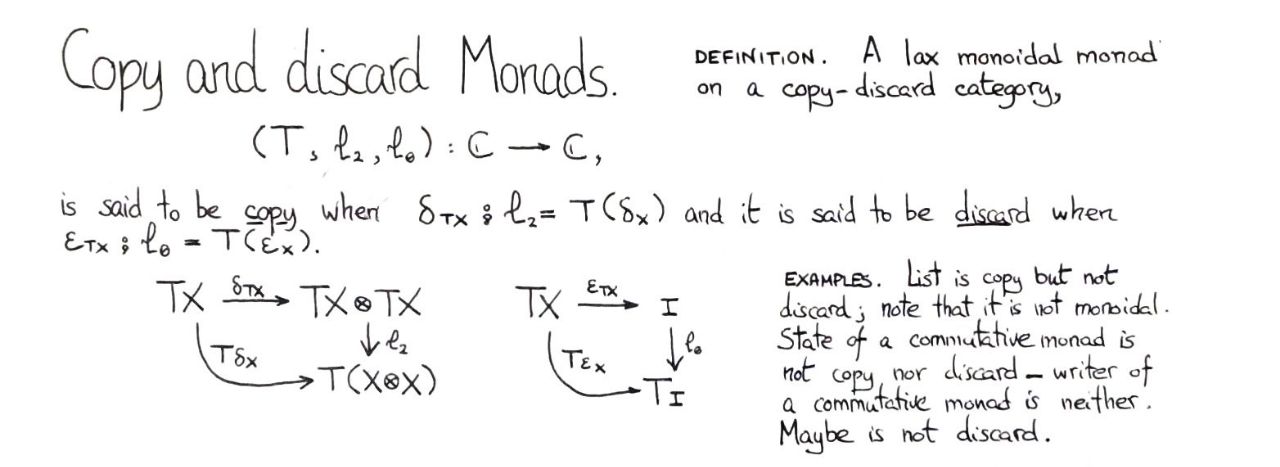 Copy and discard Monads.
DEFINITION. A lax monoidal monad
on a copy-discard category,
(T, ℓ₂, ℓ₀) : ℂ → ℂ,
is said to be copy when δ_TX ⨾ ℓ₂ = T(δ_X) and it is said to be discard when
ε_TX ⨾ ℓ₀ = T(ε_X).
TX δ_TX TX⊗TX
ℓ₂
Tδ_X
T(X⊗X)
TX ε_TX I
ℓ₀
Tε_X
TI
EXAMPLES. List is copy but not
discard; note that it is not monoidal.
State of a commutative monad is
not copy nor discard – writer of
a commutative monad is neither.
Maybe is not discard.